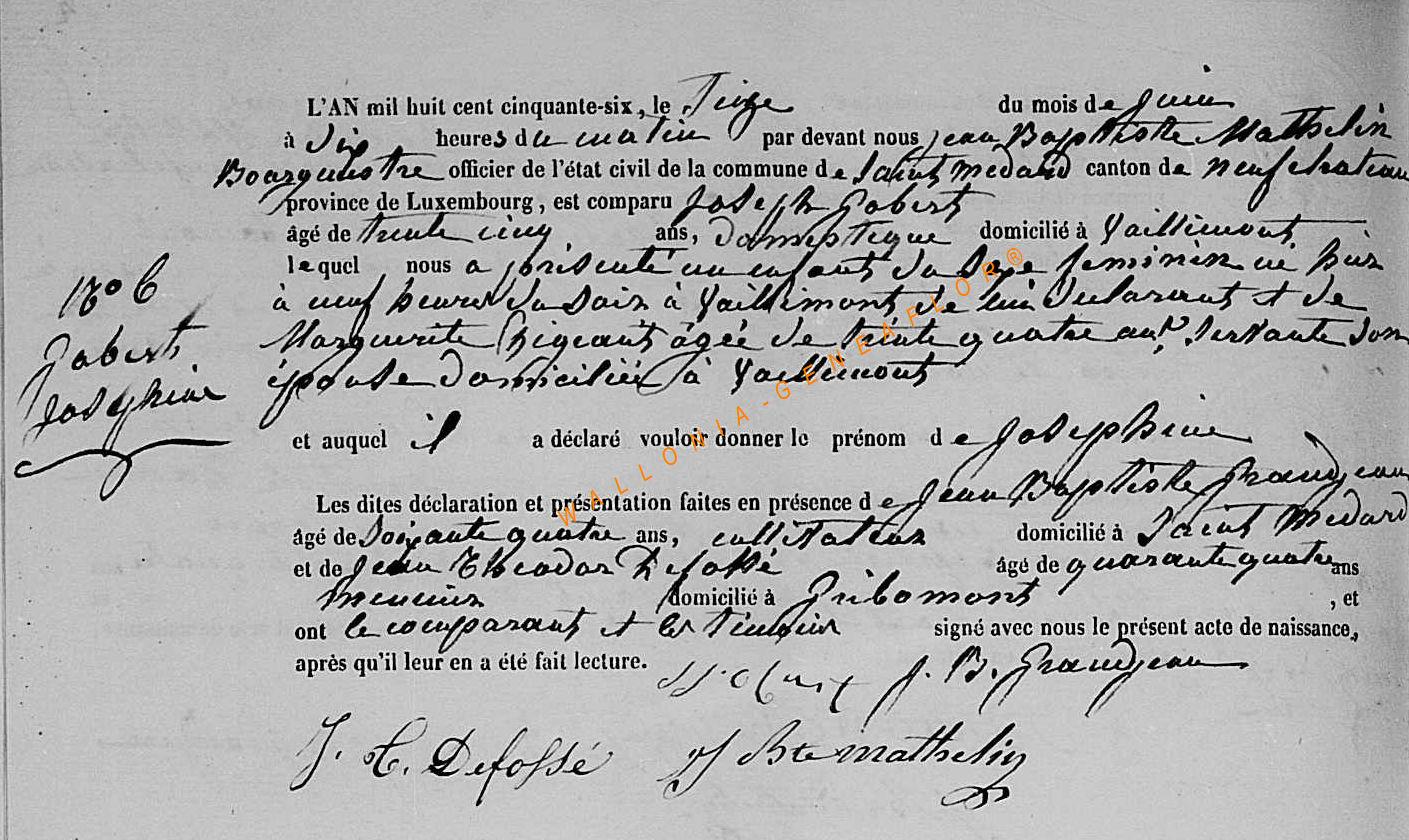 L'AN mil huit cent cinquante-six, le Seize du mois de juin
à Six heures du matin par devant nous jean Baptiste Mathelin
Bourgmestre officier de l'état civil de la commune de Saint Medard canton de neufchateau
province de Luxembourg, est comparu Joseph Jobert
âgé de trente cinq ans, domestique domicilié à
lequel nous a présenté un enfant du Sexe feminin né hier
à neuf heures du Soir à de lui declarant et de
Marguerite âgée de trente quatre ans, Servante Son
épouse domiciliée à
No 6
Jobert
Josephine
et auquel il a déclaré vouloir donner le prénom de Josephine
Les dites déclaration et présentation faites en présence de Jean Baptiste Grandjean
âgé de Soixante quatre ans, cultivateur domicilié à Saint Medard
et de Jean Theodor Defossé âgé de quarante quatre ans
meunier domicilié à Gribomont, et
ont le comparant et les témoins signé avec nous le présent acte de naissance,
après qu'il leur en a été fait lecture.
J. B. Grandjean
J. T. Defossé J Bte mathelin
WALLONIA-GENEAFLOR®